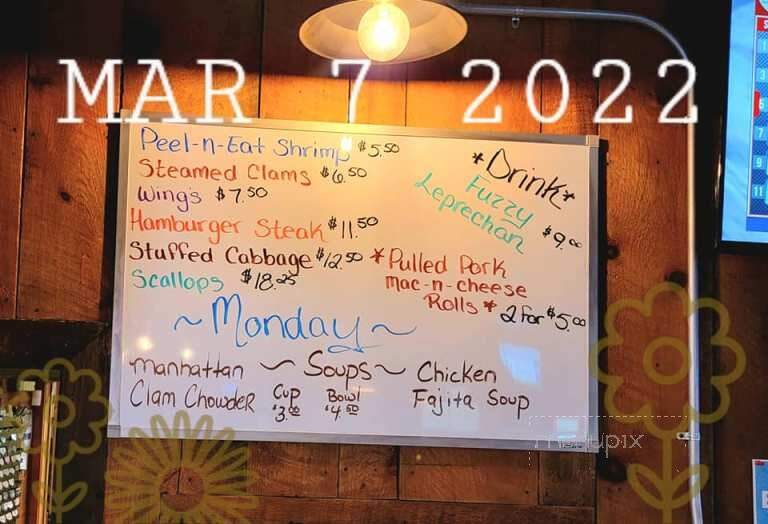 MAR 7 2022
Peel-n-Eat Shrimp $5.50
Steamed Clams $6.50
Wings $7.50
Hamburger Steak $11.50
Stuffed Cabbage $12.50
Scallops $18.25
*Drink*
Fuzzy
Leprechan $9.00
*Pulled Pork
mac-n-cheese
Rolls* 2 for $5.00
~Monday~
~Soups~
manhattan
Clam Chowder
Cup
$3.00
Bowl
$4.50
Chicken
Fajita Soup